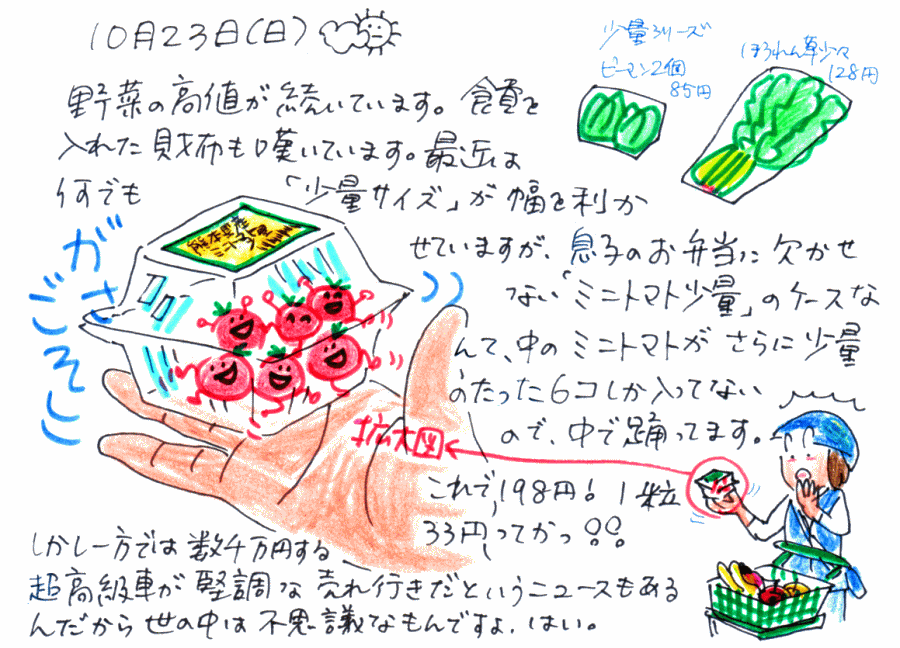 10月23日(日)
少量シリーズ
ピーマン2個
85円
ほうれん草少々
128円
野菜の高値が続いています。食費を
入れた財布も嘆いています。最近は
何でも「少量サイズ」が幅を利か
せていますが、息子のお弁当に欠かせ
ない「ミニトマト少量」のケースな
んて、中のミニトマトがさらに少量
のたった6コしか入ってない
ので、中で踊ってます。
熊本県産
ミニトマト
がさ
ごそ
拡大図
これで198円!1粒
33円ってかっ!!
しかし一方では数千万円する
超高級車が堅調な売れ行きだというニュースもある
んだから世の中は不思議なもんですよ、はい。